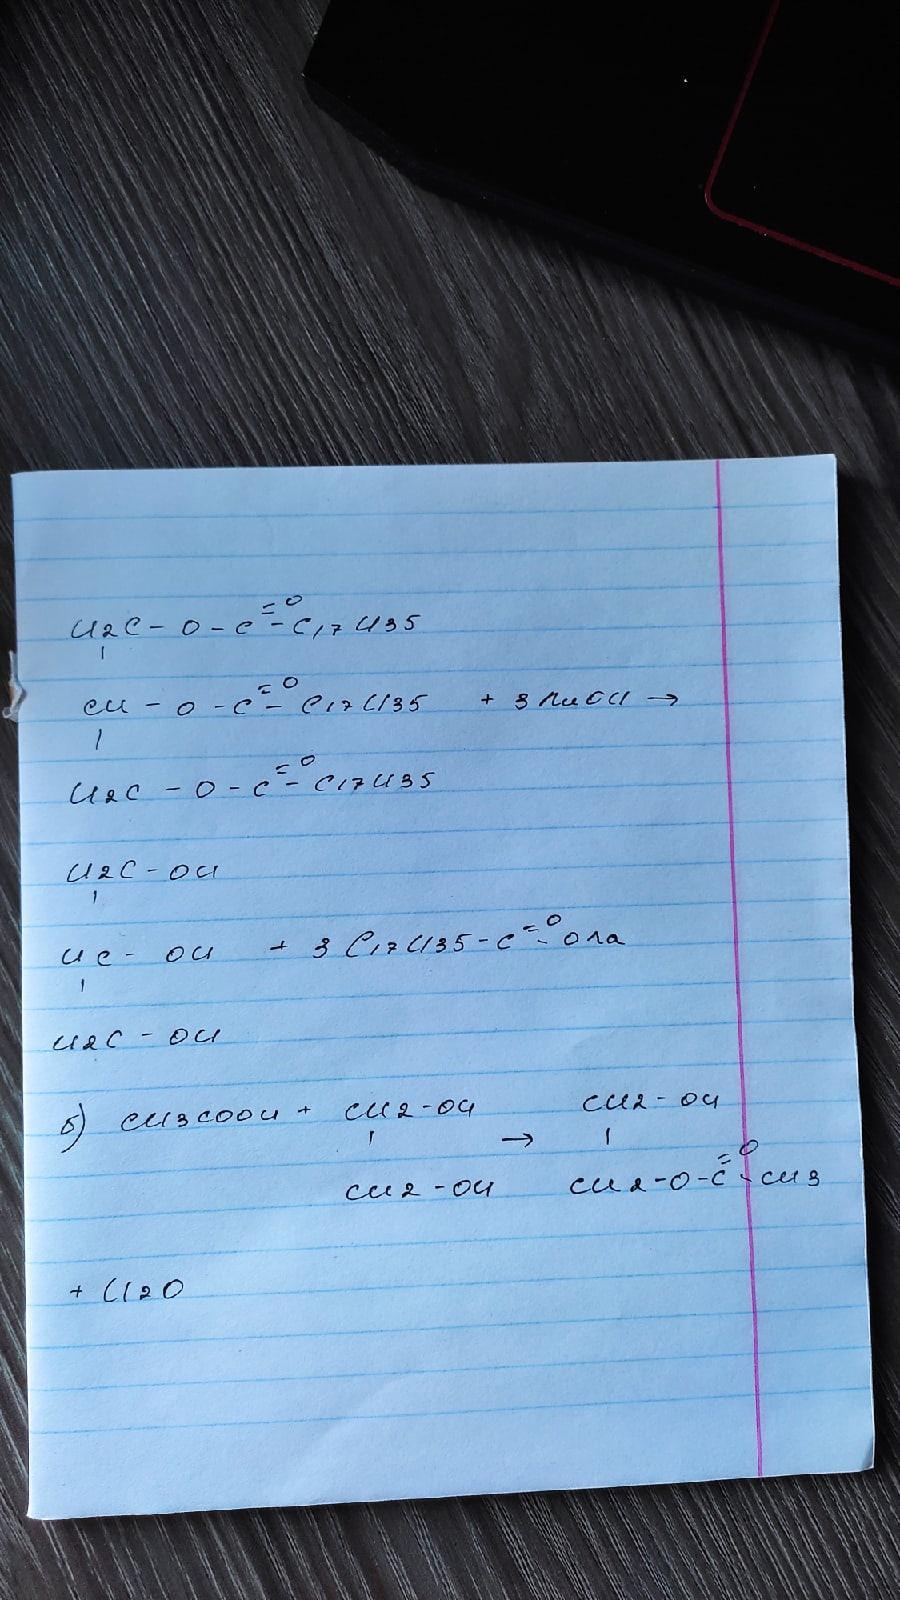 H2C - O - C =O - C17H35
|
CH - O - C =O - C17H35 + 3 NaOH →
|
H2C - O - C =O - C17H35
H2C - OH
|
HC - OH + 3 C17H35 - C =O - ONa
|
H2C - OH
б) CH3COOH + CH2-OH → CH2-OH
| |
CH2-OH CH2-O-C =O - CH3
+ H2O